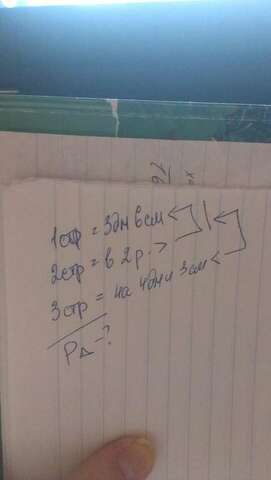 1стр = 3дм 6см
2стр = в 2 р. >
3стр = на 4дм и 3см <
P∆ - ?